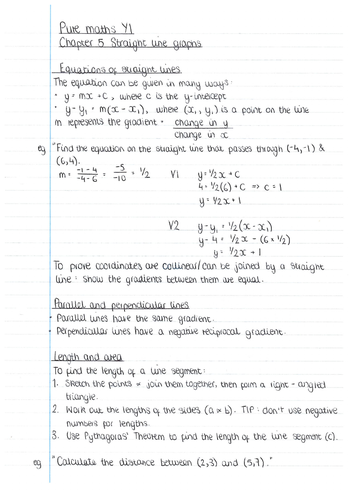 Pure maths Y1
Chapter 5 Straight line graphs
Equations of straight lines
The equation can be given in many ways:
• y = mx + c, where c is the y-intercept
• y - y₁ = m(x - x₁), where (x₁, y₁) is a point on the line
m represents the gradient = change in y
change in x
eg "Find the equation on the straight line that passes through (-4,-1) &
(6,4).
m = -1-4 / -4-6 = -5 / -10 = 1/2 V1 y = 1/2x + c
4 = 1/2(6) + c => c = 1
y = 1/2x + 1
V2 y - y₁ = 1/2(x - x₁)
y - 4 = 1/2x - (6 × 1/2)
y = 1/2x + 1
To prove coordinates are collinear/can be joined by a straight
line : show the gradients between them are equal.
Parallel and perpendicular lines
• Parallel lines have the same gradient.
• Perpendicular lines have a negative reciprocal gradient.
Length and area
To find the length of a line segment:
1. Sketch the points & join them together, then form a right-angled
triangle.
2. Work out the lengths of the sides (a & b). TIP: don't use negative
numbers for lengths.
3. Use Pythagoras' Theorem to find the length of the line segment (c).
eg "Calculate the distance between (2,3) and (5,7)."